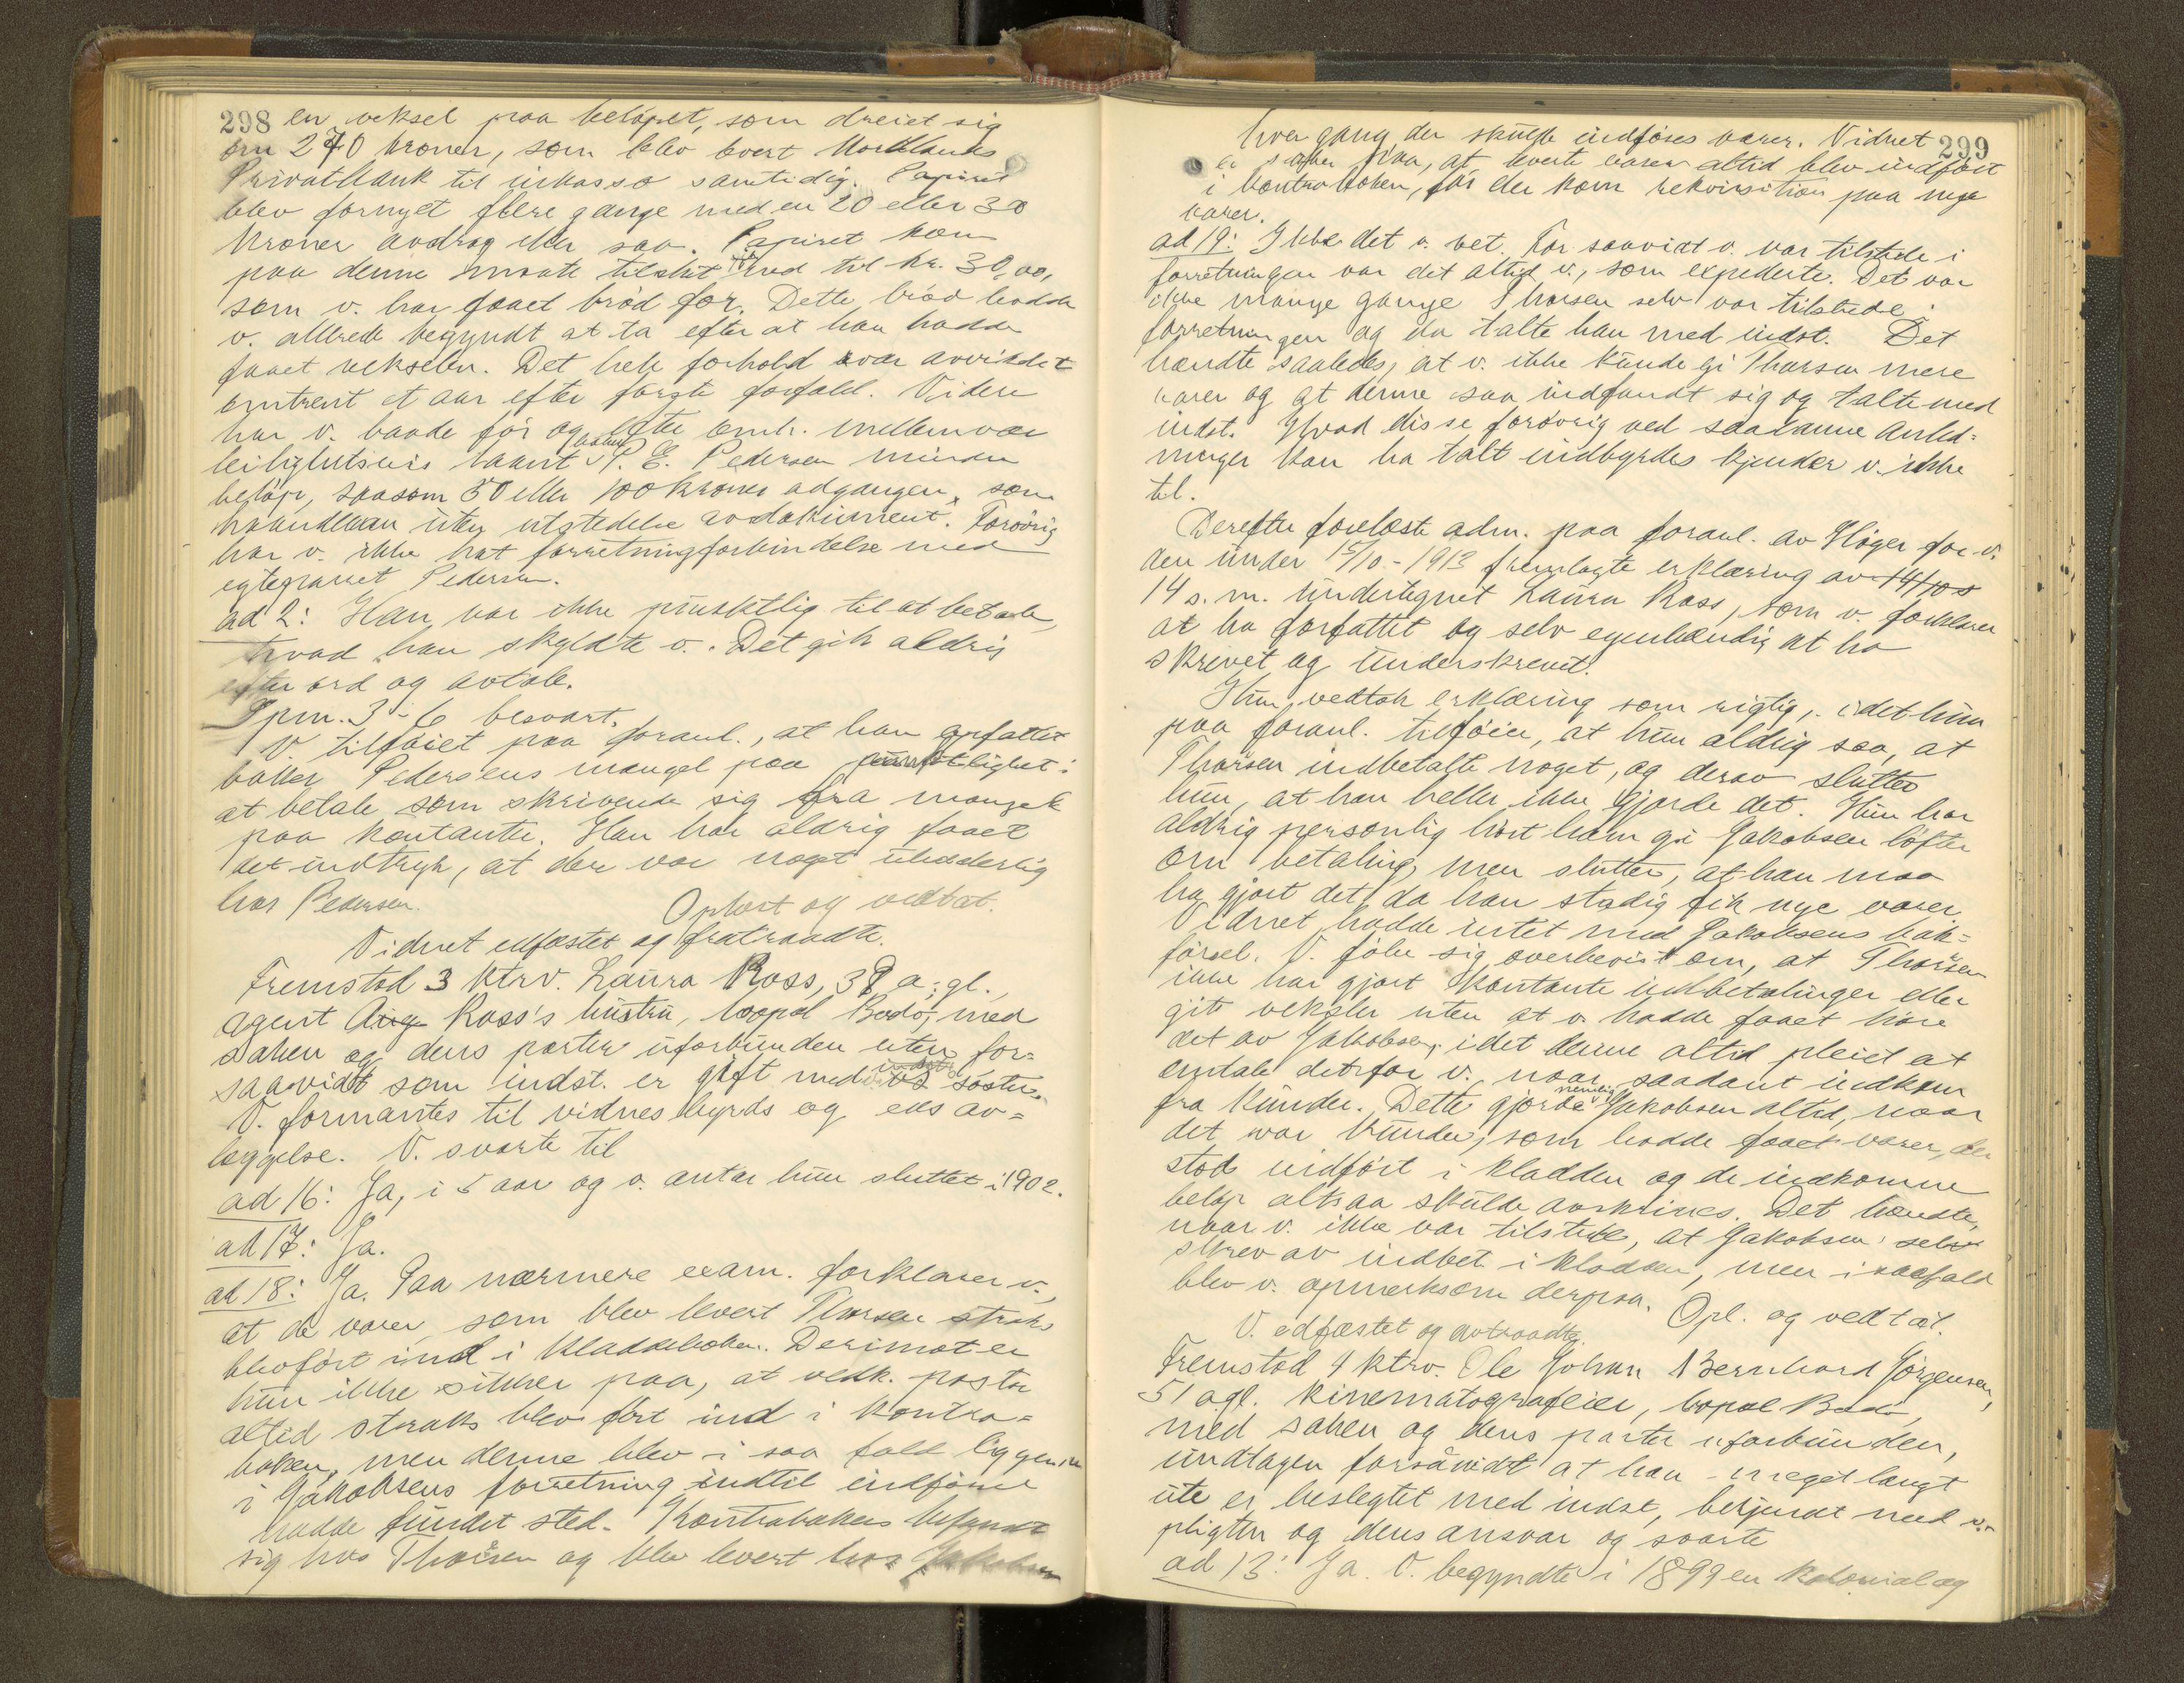 298 en veksel paa beløpet, som dreiet sig
om 270 kroner, som blev levert Nordlands
Privatbank til inkasso samtidig. Papiret
blev fornyet flere gange med en 20 eller 30
kroner avdrag eller saa. Papiret kom
paa denne maate tilslut ned til kr. 30,00,
som v. har faaet brød for. Dette brød hadde
v. allerede begyndt at ta efter at han hadde
faaet vekselen. Det hele forhold var avviklet
omtrent et aar efter første forfald. Viden
har v. baade før og efter omh. mellemvær
leilighetsvis laant baker P. E. Pedersen mindre
beløp, saasom 50 eller 100 kroner adgangen, som
haandlaan uten utstedelse av dokument. Forøvrig
har v. ikke hat forretningsforbindelse med
egteparret Pedersen.
ad 2: Han var ikke punktlig til at betale,
hvad han skyldte v. Det gik aldrig
efter ord og avtale.
Spm. 3-6 besvart.
V. tilføiet paa foranl., at han opfattet
baker Pedersens mangel paa punktlighet i
at betale som skrivende sig fra mangel
paa kontanter. Han har aldrig faaet
det indtryk, at der var noget uhæderlig
hos Pedersen.
Oplæst og vedtat.
Vidnet edfæstet og fratraadte.
Fremstod 3 ktrv. Laura Ross, 38 a. gl.,
agent Aug Ross's hustru, bopæl Bodø, med
saken og dens parter uforbunden uten for-
saavidt som indst. er gift med v's søster.
V. formantes til vidnesbyrds og eds av-
læggelse. V. svarte til
ad 16: Ja, i 5 aar og v. antar hun sluttet i 1902.
ad 17: Ja.
ad 18: Ja. Paa nærmere exam. forklarer v.,
at de varer, som blev levert Thorsen straks
blev ført ind i kladdeboken. Derimot er
hun ikke sikker paa, at vedk. poster
altid straks blev ført ind i kontra-
boken, men denne blev i saa fald liggende
i Jakobsens forretning indtil indførsel
hadde fundet sted. Kontraboken befandt
sig hos Thorsen og blev levert hos Jakobsen
299
hver gang der skulde indføres varer. Vidnet
er sikker paa, at leverte varer altid blev indført
i kontraboken, før der kom rekvisition paa nye
varer.
ad 19: Ikke det v. vet. For saavidt v. var tilstede i
forretningen var det altid v., som expederte. Det var
ikke mange gange Thorsen selv var tilstede i
forretningen og da talte han med indst. Det
hændte saaledes, at v. ikke kunde gi Thorsen mere
varer og at denne saa indfandt sig og talte med
indst. Hvad disse forøvrig ved saadanne anled-
ninger kan ha talt indbyrdes kjender v. ikke
til.
Derefter foreleste adm. paa foranl. av Høyer for v.
den under 15/10-1913 fremlagte erklæring av 14/10 s
14 s. m. undertegnet Laura Ross, som v. forklarer
at ha forfattet og selv egenhændig at ha
skrevet og underskrevet.
Hun vedtok erklæring som rigtig, idet hun
paa foranl. tilføier, at hun aldrig saa, at
Thorsen indbetalte noget, og derav slutter
hun, at han heller ikke gjorde det. Hun har
aldrig personlig hørt ham gi Jakobsen løfter
om betaling, men slutter, at han maa
ha gjort det, da han stadig fik nye varer.
Vidnet hadde intet med Jakobsens bok-
førsel. V. føler sig overbevist om, at Thorsen
ikke har gjort kontante indbetalinger eller
git veksler uten at v. hadde faaet høre
det av Jakobsen, idet denne altid pleiet at
omtale det for v. naar saadant indkom
fra kunder. Dette gjorde nemlig Jakobsen altid, naar
det var kunder, som hadde faaet varer, der
stod indført i kladden og de indkomne
beløp altsaa skulde avskrives. Det hændte,
naar v. ikke var tilstede, at Jakobsen selv
skrev av indbet i kladden, men i saafald
blev v. opmerksom derpaa. Opl. og vedtat.
V. edfæstet og avtraadte.
Fremstod 4 ktrv. Ole Johan Bernhard Jørgensen,
51 a. gl. kinematografeier, bopæl Bodø,
med saken og dens parter uforbunden,
undtagen forsåvidt at han meget langt
ute er beslegtet med indst, bekjendt med v.
pligten og dens ansvar og svarte
ad 13: Ja. V. begyndte i 1899 en kolonial og